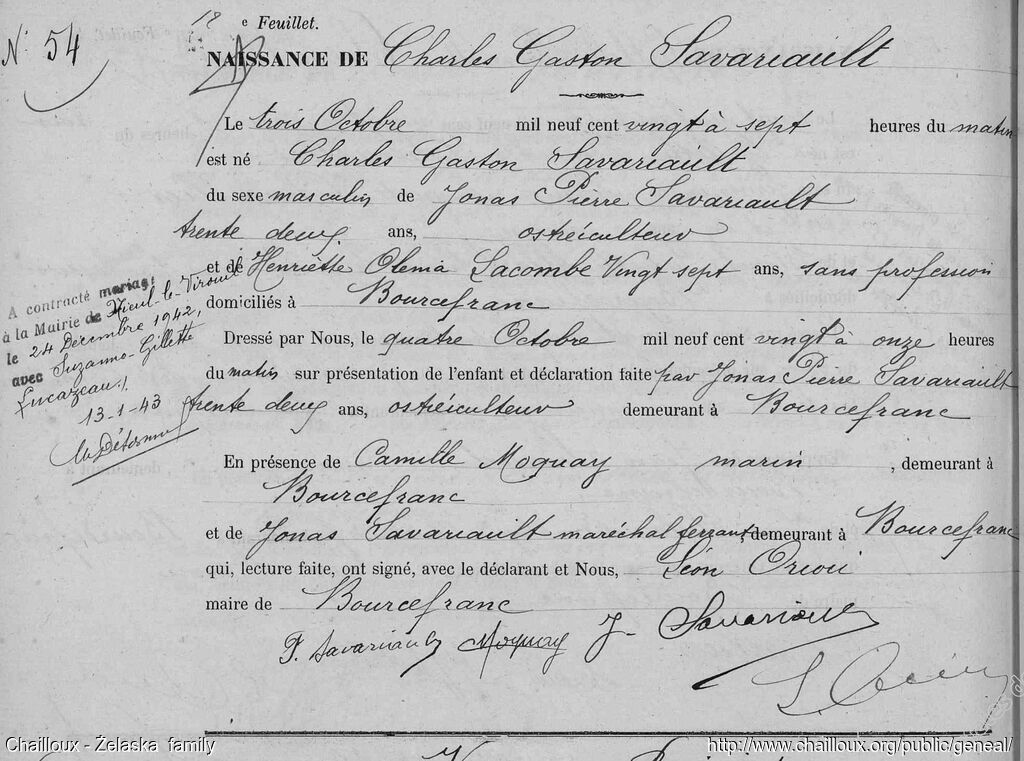 18 e Feuillet.
N° 54
NAISSANCE DE Charles Gaston Savariault
Le trois Octobre mil neuf cent vingt à sept heures du matin
est né Charles Gaston Savariault
du sexe masculin de Jonas Pierre Savariault
trente deux ans, ostréiculteur
et de Henriette Olenia Lacombe Vingt sept ans, sans profession
domiciliés à Bourcefranc
Dressé par Nous, le quatre Octobre mil neuf cent vingt à onze heures
du matin sur présentation de l'enfant et déclaration faite par Jonas Pierre Savariault
trente deux ans, ostréiculteur demeurant à Bourcefranc
En présence de Camille Moquay marin, demeurant à
Bourcefranc
et de Jonas Savariault maréchal ferrant, demeurant à Bourcefranc
qui, lecture faite, ont signé, avec le déclarant et Nous, Léon
maire de Bourcefranc
P. Savariault Moquay J. Savariault
L.
A contracté mariage
à la Mairie de Vieul-le-Virouil
le 24 Décembre 1942,
avec Suzanne-Gillette
Lucazeau./
13-1-43
Chailloux - Żelaska family
http://www.chailloux.org/public/geneal/